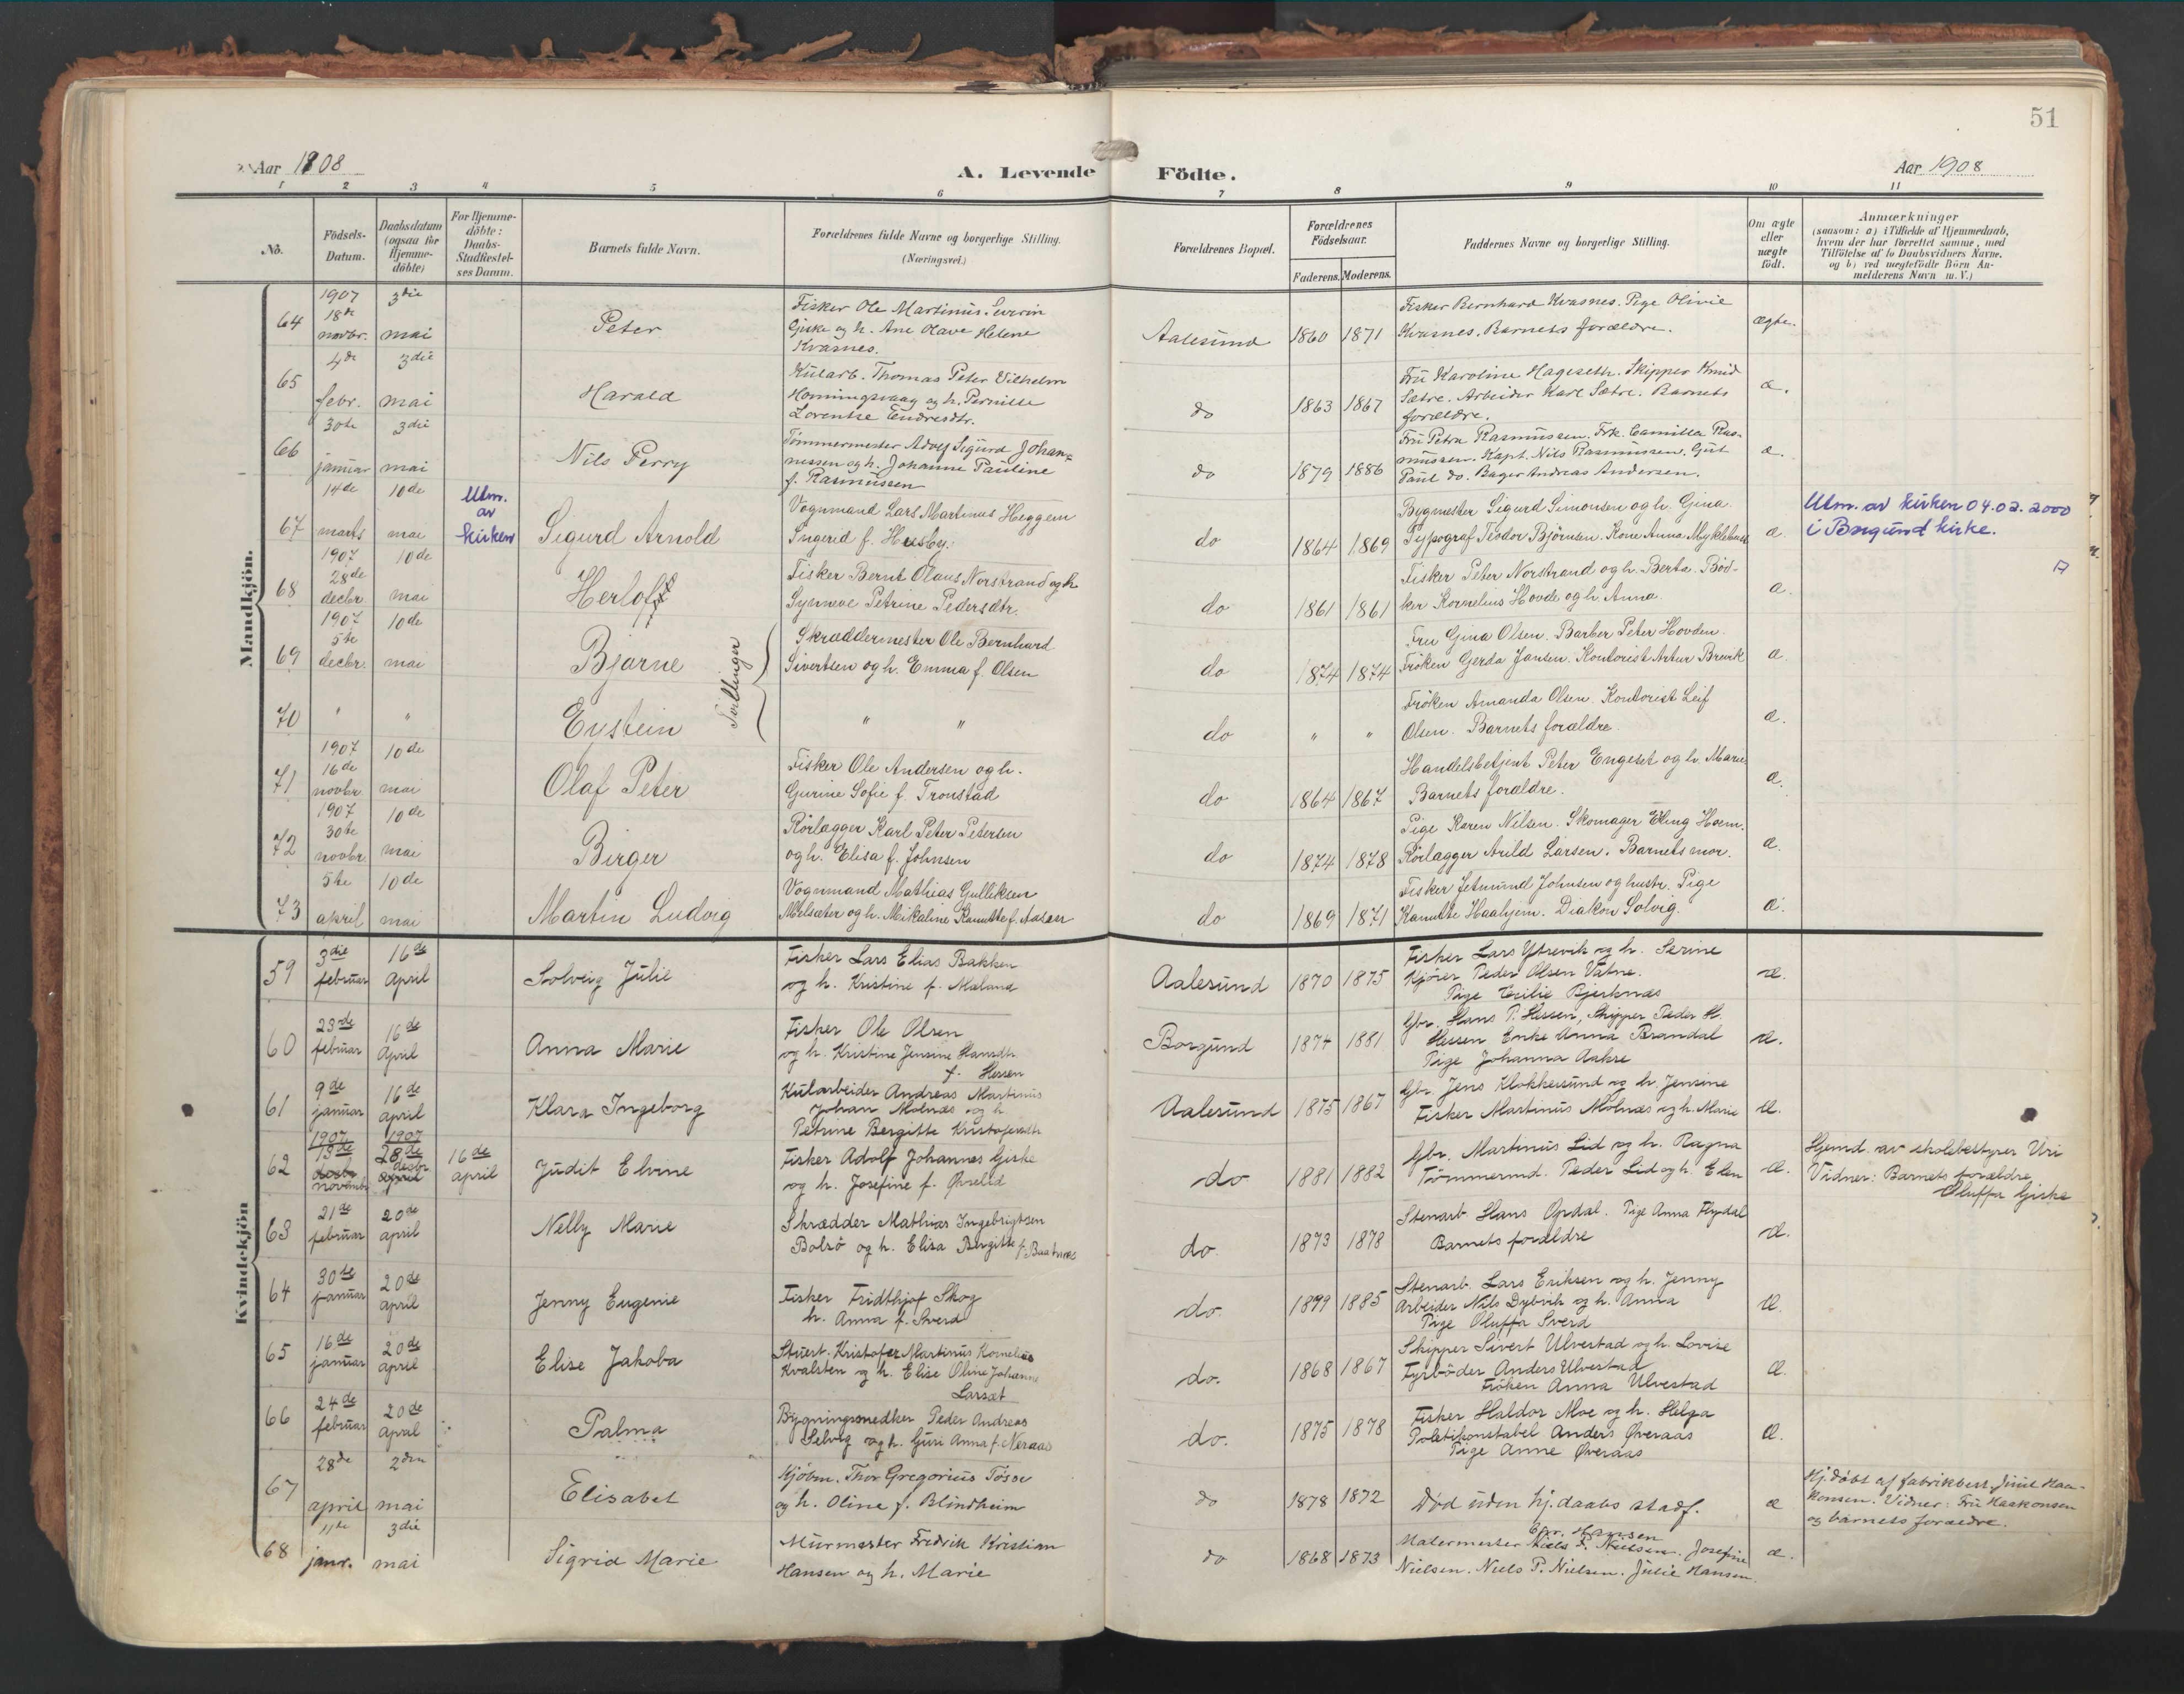 51
Aar 1908
A. Levende Födte.
Aar 1908
1 2 3 4 5 6 7 8 9 10 11
No.
Födsels-Datum.
Daabsdatum (ogsaa for Hjemme-döbte)
For Hjemme-döbte: Daabs-Stadfæstel-ses Datum.
Barnets fulde Navn.
Forældrenes fulde Navne og borgerlige Stilling. (Næringsvei.)
Forældrenes Bopæl.
Forældrenes Födselsaar.
Faderens. Moderens.
Faddernes Navne og borgerlige Stilling.
Om ægte eller uægte födt.
Anmærkninger
(saasom: a) i Tilfælde af Hjemmedaab,
hvem der har forrettet samme, med
Tilföielse af to Daabsvidners Navne,
og b) ved uægtefödte Börn An-
melderens Navn m. V.)
Mandkjön.
64
1907 18de novbr.
3die mai
Peter
Fisker Ole Martinus Severin
Giske og h. Ane Olave Helene
Kvasnes.
Aalesund
1860 1871
Fisker Bernhard Kvasnes. Pige Olivie
Kvasnes. Barnets forældre.
ægte.
65
4de febr.
3die mai
Harald
Kularb. Thomas Peter Vilhelm
Honningsvaag og h. Pernille
Lorentse Endresdtr.
do
1863 1867
Fru Karoline Hageseth. Skipper Knud
Sætre. Arbeider Karl Sætre. Barnets
forældre.
æ.
66
30te januar
3die mai
Nils Perry
Tømmermester Adolf Sigurd Johan-
nessen og h. Johanne Pauline
f. Rasmussen
do
1879 1886
Fru Petra Rasmussen. Frk. Camilla Ras-
mussen. Kapt. Nils Rasmussen. Gut
Paul do. Bager Andreas Andersen.
æ.
67
14de marts
10de mai
Utm. av kirken
Sigurd Arnold
Vognmand Lars Martinus Heggem
Ingerid f. Husby.
do
1864 1869
Bygmester Sigurd Simonsen og h. Gina
Typograf Teodor Bjørnsen. Kone Anna Myklebust
æ
Utm. av kirken 04.02.2000
i Borgund kirke.
68
1907 28de decbr.
10de mai
Herlof
Fisker Bernt Olaus Norstrand og h
Synneve Petrine Pedersdtr.
do
1861 1861
Fisker Peter Norstrand og h. Berta. Bød-
ker Kornelius Hovde og h. Anna.
æ.
69
1907 5te decbr.
10de mai
Bjarne
Tvillinger
Skræddermester Ole Bernhard
Sivertsen og h. Emma f. Olsen
do
1874 1874
Fru Gina Olsen. Barber Peter Hovden.
Frøken Gerda Jansen. Kontorist Artur Brevik
æ.
70
" "
Eystein
" "
do
" "
Frøken Amanda Olsen. Kontorist Leif
Olsen. Barnets forældre.
æ.
71
1907 16de novbr
10de mai
Olaf Peter
Fisker Ole Andersen og h.
Gurine Sofie f. Tronstad
do
1864 1867
Handelsbetjent Peter Engeset og h. Marie
Barnets forældre.
æ.
72
1907 30te novbr.
10de mai
Birger
Rørlægger Karl Peter Petersen
og h. Elisa f. Johnsen
do
1874 1878
Pige Karen Nilsen. Skomager Eling Hoem.
Rörlægger Arild Larsen. Barnets mor.
æ.
73
5te april
10de mai
Martin Ludvig
Vognmand Mathias Gulliksen
Melsæter og h. Mikaline Kanutte f. Aasen
do
1869 1871
Fisker Jetmund Johnsen og hustr. Pige
Kanutte Haahjem. Diakon Solvig.
æ.
Kvindekjön
59
3die februar
16de april
Solveig Julie
Fisker Lars Elias Bakken
og h. Kristine f. Maland
Aalesund
1870 1875
Fisker Lars Ytrevik og h. Serine
Kjører Peder Olsen Vatne.
Pige Cecilie Bjerknæs
æ.
60
23de februar
16de april
Anna Marie
Fisker Ole Olsen
og h. Kristine Jensine Hansdtr.
f. Hessen
Borgund
1874 1881
Gbr. Hans P. Hessen, Skipper Peder H.
Hessen Enke Anna Brandal
Pige Johanna Aakre
æ.
61
9de januar
16de april
Klara Ingeborg
Kularbeider Andreas Martinus
Johan Molnæs og h
Petrine Bergitte Kristofersdtr
Aalesund
1875 1867
Gbr Jens Klokkersund og h. Jensine
Fisker Martinus Molnæs og h. Marie
æ.
62
1907 13de novembr
1907 28de desbr
16de april
Judit Elvine
Fisker Adolf Johannes Giske
og h. Josefine f. Øvrelid
do
1881 1882
Gbr. Martinus Lid og h. Ragna
Tömmermd. Peder Lid og h. Elen
æ.
Hjemd. av skolebestyrer Uri
Vidner: Barnets forældre
Oluffa Giske
63
21de februar
20de april
Nelly Marie
Skrædder Mathias Ingebrigtsen
Bolsö og h. Elisa Bergitte f. Baatnæs
do.
1873 1878
Stenarb Hans Opdal. Pige Anna Flydal
Barnets forældre
æ.
64
30te januar
20de april
Jenny Eugenie
Fisker Fridthjof Skog
h. Anna f. Sverd
do.
1899 1885
Stenarb. Lars Eriksen og h. Jenny
Arbeider Nils Dybvik og h. Anna
Pige Oluffa Sverd
æ.
65
16de januar
20de april
Elise Jakoba
Stuert. Kristofer Martinus Kornelius
Kvalsten og h. Elise Oline Johanne
Larsæt
do.
1868 1867
Skipper Sivert Ulvestad og h. Lovise
Fyrböder Anders Ulvestad
Fröken Anna Ulvestad
æ.
66
24de februar
20de april
Palma
Bygningssnedker Peder Andreas
Selvig og h. Guri Anna f. Neraas
do.
1875 1878
Fisker Haldor Moe og h. Helga
Politikonstabel Anders Øveraas
Pige Anne Øveraas
æ.
67
28de april
2den mai
Elisabet
Kjöbm. Thor Gregorius Tösse
og h. Oline f. Blindheim
do
1878 1872
Död uden hj.daabs stadf.
æ
Hj.döbt af fabrikbest. Juul Haa-
konsen. Vidner: Fru Haakonsen
og barnets forældre.
68
11te janr.
3die mai
Sigrid Marie
Murmester Fredrik Kristian
Hansen og h. Marie
do
1868 1873
Chr. Hansen
Malermester Niels P. Nielsen. Josefine
Nielsen. Niels P. Nielsen. Julie Hansen.
æ.